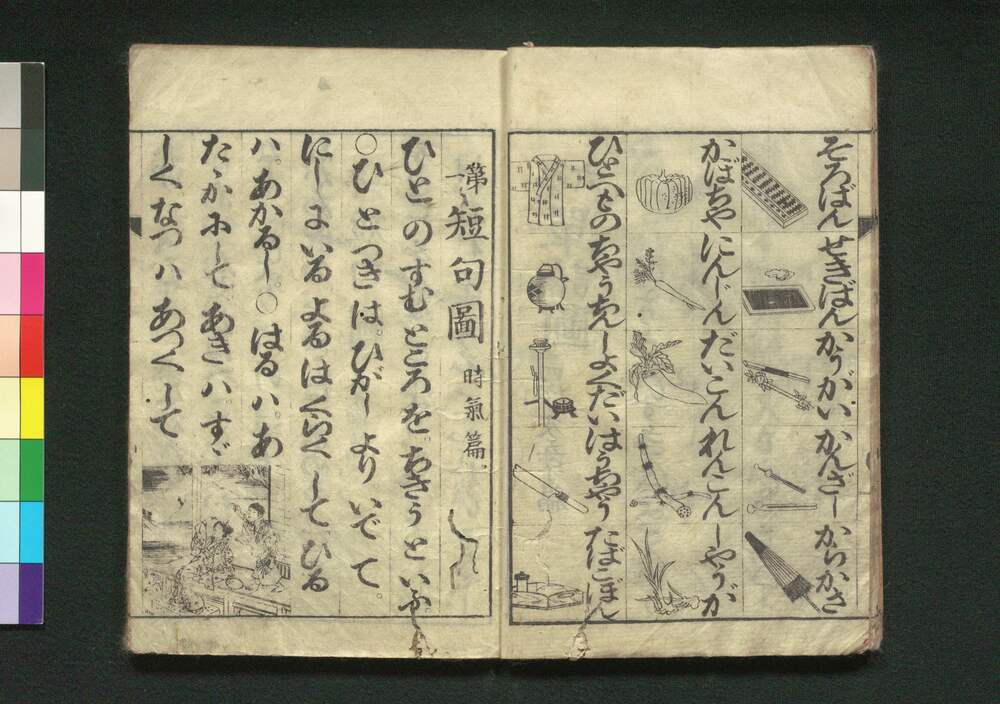 そろばん せきばん かうがい かんざし からかさ
かばちや にんじん だいこん れんこん しやうが
ひとへもの ちやうちん しよくだい はうちやう たばこぼん
第一 短句圖 時氣篇
ひとのすむところをちきうといふ
○ひとつきは。ひがしよりいでて。
にしにいるよるはくらくしてひる
ハ。あかるし。○はるハ。あ
たゝかにして。あきハ。すゞ
しくなつハあつくして